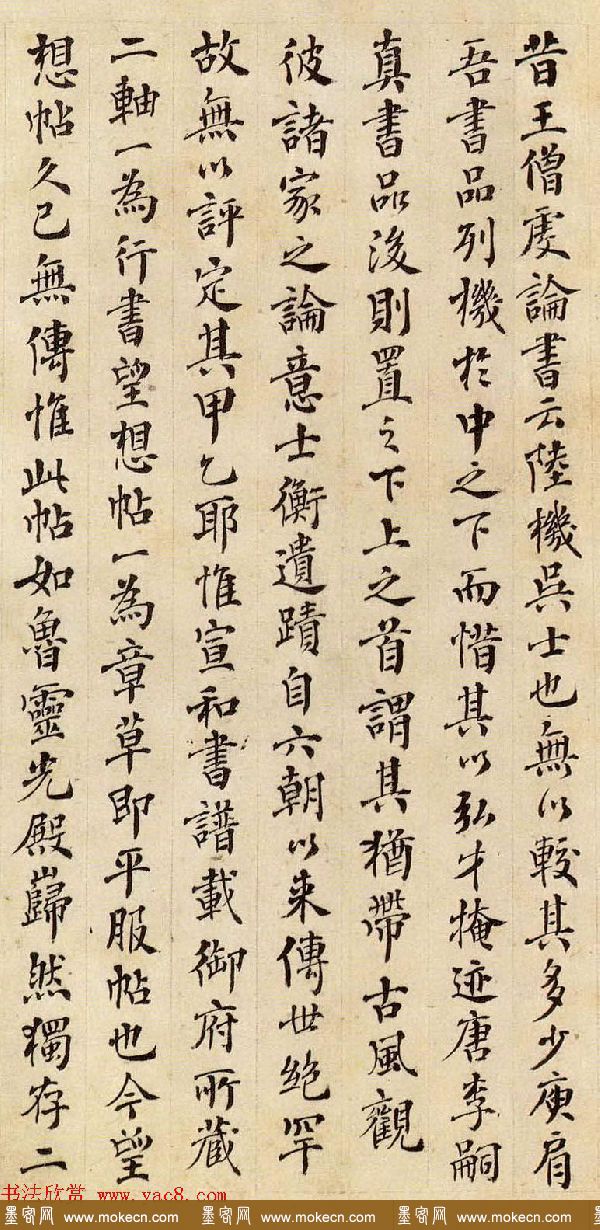 昔王僧虔論書云陸機吳士也無以較其多少庾肩
吾書品列機於中之下而惜其以弘才掩迹唐李嗣
真書品後則置之下上之首謂其猶帶古風觀
彼諸家之論意士衡遺蹟自六朝以来傳世絶罕
故無以評定其甲乙耶惟宣和書譜載御府所藏
二軸一為行書望想帖一為章草即平服帖也今望
想帖久已無傳惟此帖如魯靈光殿巋然獨存二
书法欣赏 www.yac8.com
墨客网 www.mokecn.com 墨客网 www.mokecn.com 墨客网 www.mokecn.com